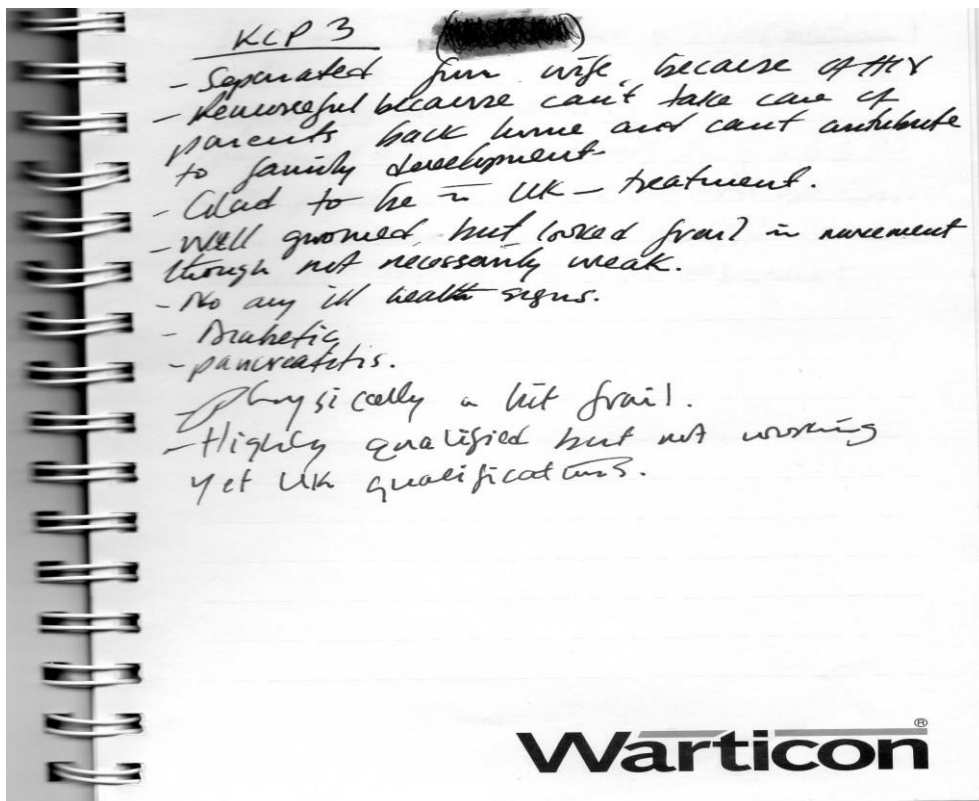 KCP 3
- Separated from wife, because of HIV
- Remorseful because can't take care of
parents back home and can't contribute
to family development
- Glad to be in UK – treatment.
- Well groomed, but looked frail in movement
though not necessarily weak.
- No any ill health signs.
- Diabetic
- pancreatitis.
- physically a bit frail.
- Highly qualified but not working
yet UK qualifications.
Warticon®